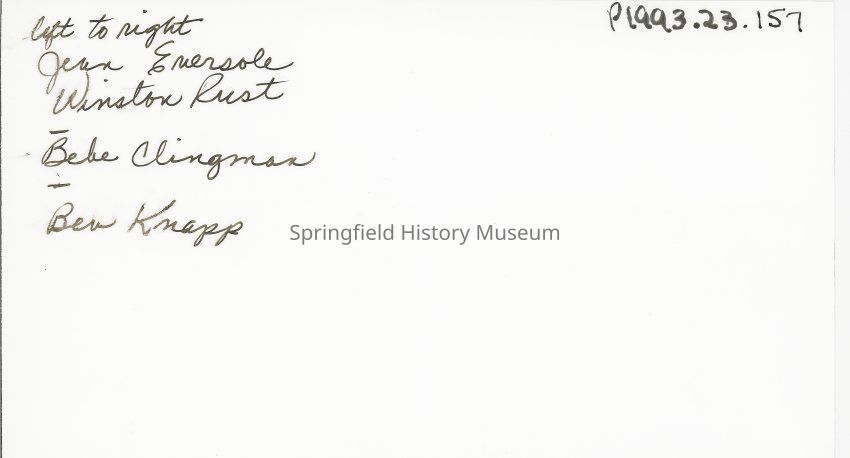 P1993.23.157
left to right
Jean Eversole
Winston Rust
—
Bebe Clingman
—
Bev Knapp
Springfield History Museum